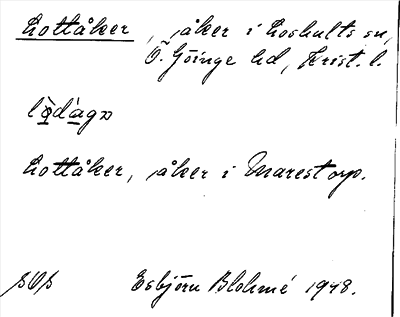 Lottåker, åker i Loshults sn,
Ö. Göinge hd, Krist. l.
Lottåker, åker i Marestorp.
Esbjörn Blohmé 1948.